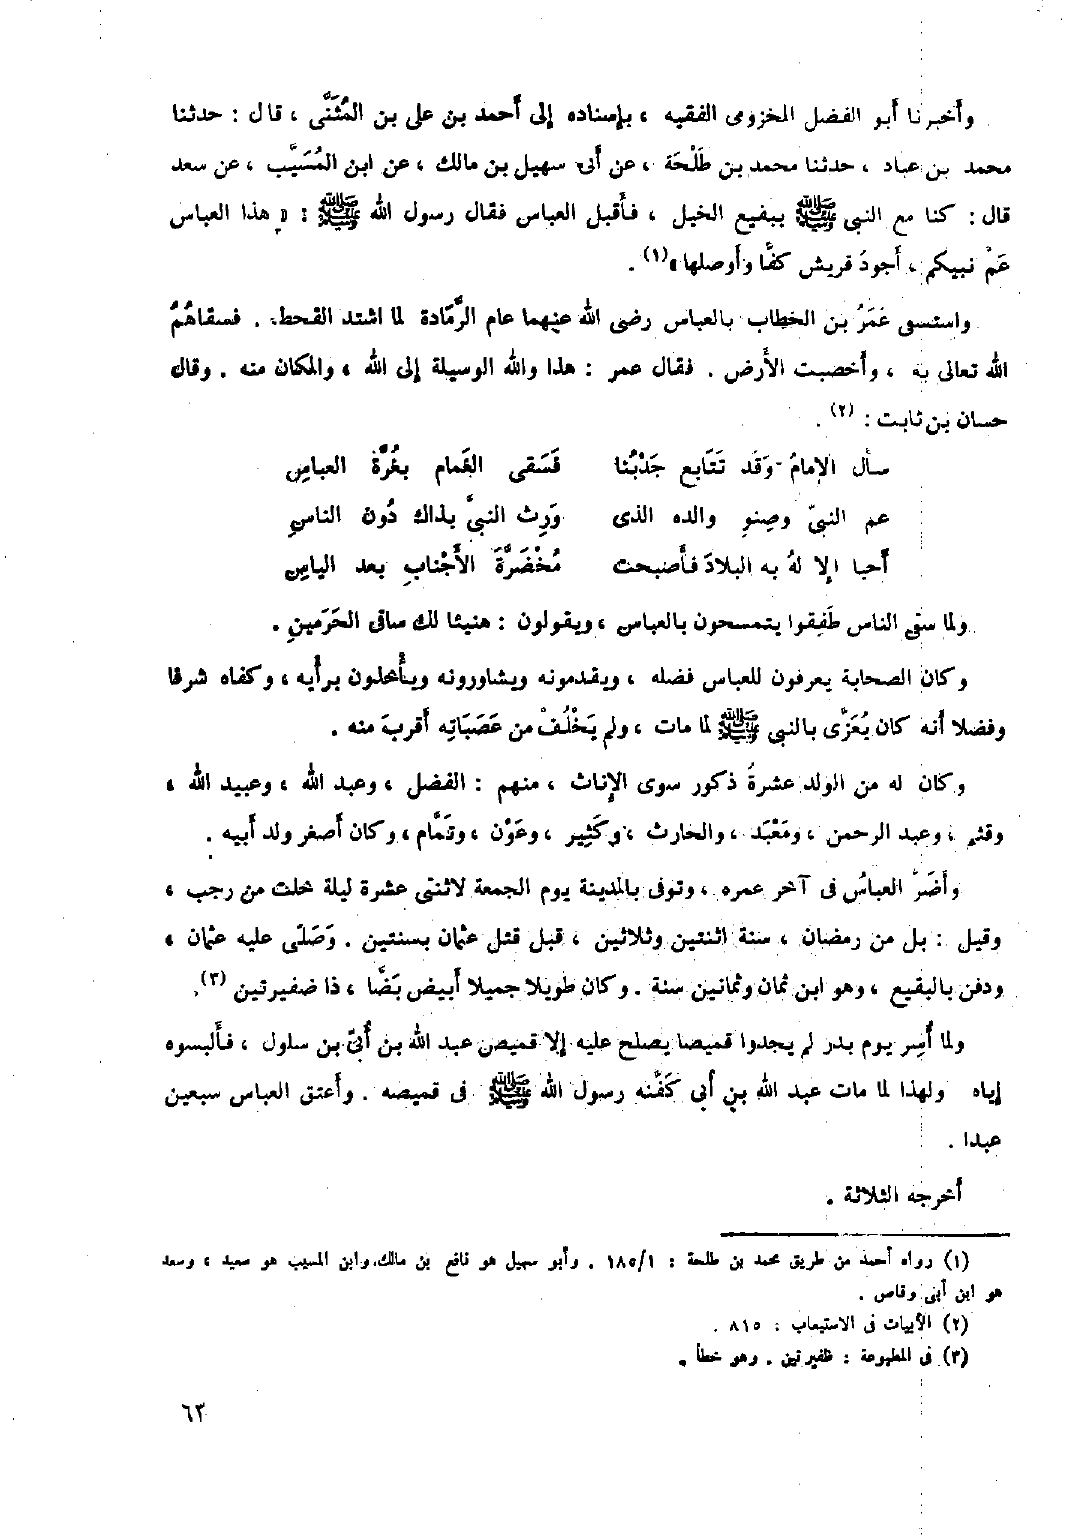 وأخبرنا أبو الفضل المخزومى الفقيه ، بإسناده إلى أحمد بن على بن المُثَنَّى ، قال : حدثنا
محمد بن عباد ، حدثنا محمد بن طَلْحَة ، عن أبى سهيل بن مالك ، عن ابن المُسَيَّب ، عن سعد
قال : كنا مع النبى ﷺ ببقيع الخيل ، فأقبل العباس فقال رسول الله ﷺ : « هذا العباس
عَمُّ نبيكم ، أجودُ قريش كفًّا وأوصلها » (١) .
واستسقى عُمَرُ بن الخطاب بالعباس رضى الله عنهما عام الرَّمَادة لما اشتد القحط . فسقاهُمُ
الله تعالى به ، وأخصبت الأرض . فقال عمر : هذا والله الوسيلة إلى الله ، والمكان منه . وقال
حسان بن ثابت : (٢) .
سأل الإمامُ وَقَد تَتَابع جَدْبُنا فَسَقى الغَمام بغُرَّة العباسِ
عم النبىّ وصِنوِ والده الذى وَرِث النبىَّ بذاك دُون الناسِ
أحيا الإلهُ به البلادَ فأصبحت مُخْضَرَّةَ الأَجْنابِ بعد الياسِ
ولما سقى الناس طَفِقوا يتمسحون بالعباس ، ويقولون : هنيئا لك ساقى الحَرَمينِ .
وكان الصحابة يعرفون للعباس فضله ، ويقدمونه ويشاورونه ويأخذون برأيه ، وكفاه شرفا
وفضلا أنه كان يُعَزَّى بالنبى ﷺ لما مات ، ولم يَخْلُفْ من عَصَبَاتِه أقربَ منه .
وكان له من الولد عشرةُ ذكور سوى الإناث ، منهم : الفضل ، وعبد الله ، وعبيد الله ،
وقثم ، وعبد الرحمن ، ومَعْبَد ، والحارث ، وكَثِير ، وعَوْن ، وتَمَّام ، وكان أصغر ولد أبيه .
وأضَرَّ العباسُ فى آخر عمره ، وتوفى بالمدينة يوم الجمعة لاثنتى عشرة ليلة خلت من رجب ،
وقيل : بل من رمضان ، سنة اثنتين وثلاثين ، قبل قتل عثمان بسنتين . وَصَلّى عليه عثمان ،
ودفن بالبقيع ، وهو ابن ثمان وثمانين سنة . وكان طويلا جميلا أبيض بَضًّا ، ذا ضفيرتين (٣) .
ولما أُسِر يوم بدر لم يجدوا قميصا يصلح عليه إلا قميص عبد الله بن أُبىّ بن سلول ، فألبسوه
إياه ولهذا لما مات عبد الله بن أبي كَفَّنه رسول الله ﷺ فى قميصه . وأعتق العباس سبعين
عبدا .
أخرجه الثلاثة .
(١) رواه أحمد من طريق محمد بن طلحة : ١/١٨٥ . وأبو سهيل هو نافع بن مالك، وابن المسيب هو سعيد ، وسعد
هو ابن أبى وقاص .
(٢) الأبيات فى الاستيعاب : ٨١٥ .
(٣) فى المطبوعة : ظفيرتين . وهو خطأ .
٦٣